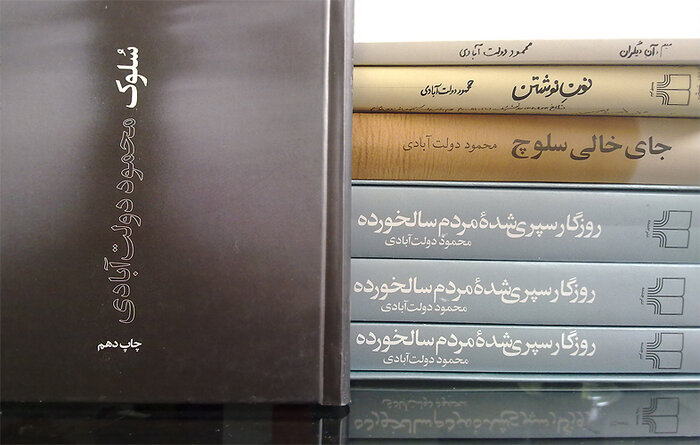 سُلوک
محمود دولت‌آبادی
چاپ دهم
میم و آن دیگران
محمود دولت آبادی
نونِ نوشتن
محمود دولت‌آبادی
جای خالی سلوچ
محمود دولت آبادی
روزگار سپری‌شدهٔ مردم سالخورده
محمود دولت‌آبادی
روزگار سپری‌شدهٔ مردم سالخورده
محمود دولت‌آبادی
روزگار سپری‌شدهٔ مردم سالخورده
محمود دولت‌آبادی